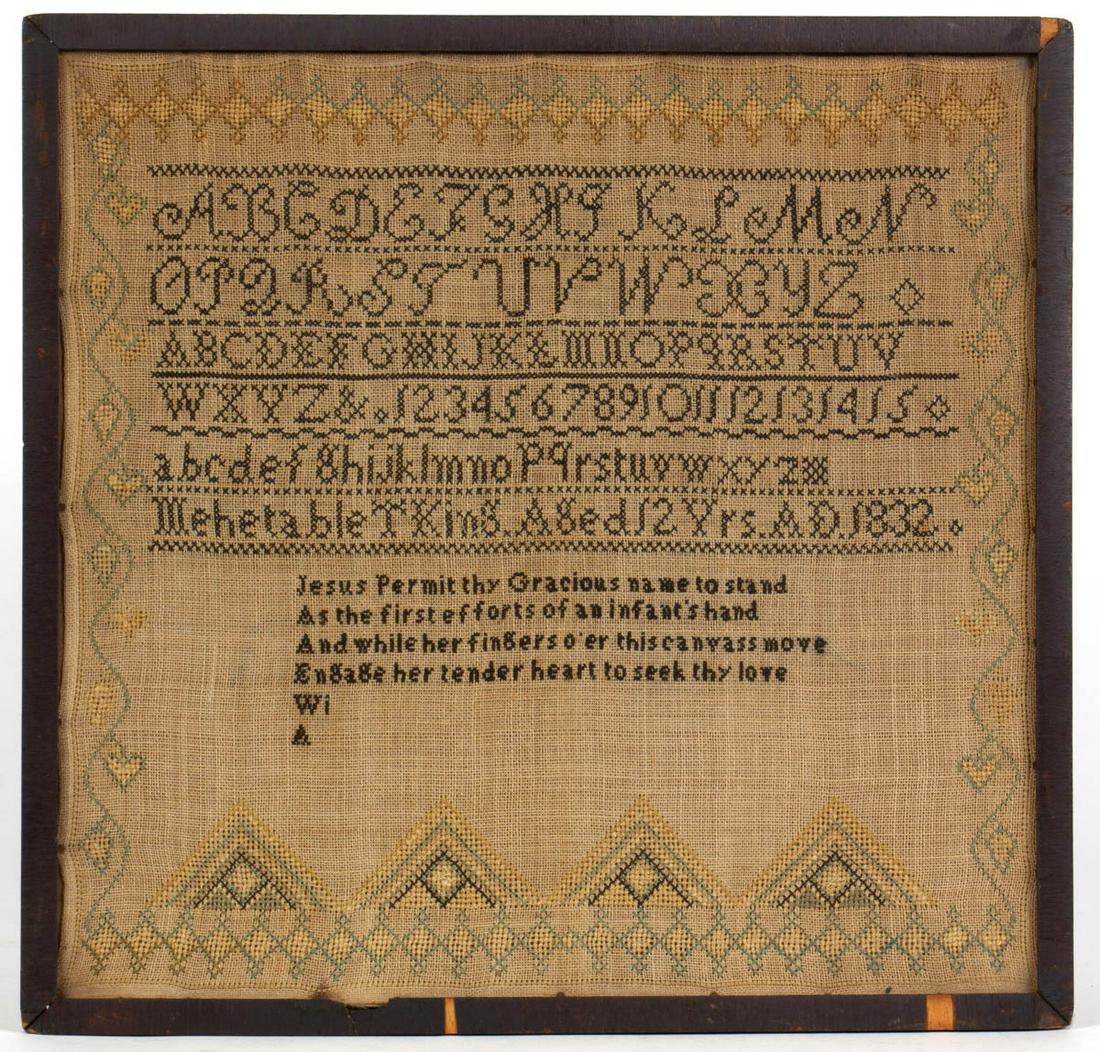 A B C D E F G H I K L M N
O P Q R S T U V W X Y Z
A B C D E F G H I J K L M N O P q R S T U V
W X Y Z & . 1 2 3 4 5 6 7 8 9 10 11 12 13 14 15
a b c d e f g h i j k l m n o P q r s t u v w x y z
Mehetable T King. Aged 12 Yrs. A D 1832.
Jesus Permit thy Gracious name to stand
As the first efforts of an infant's hand
And while her fingers o'er this canvass move
Engage her tender heart to seek thy love
Wi
A